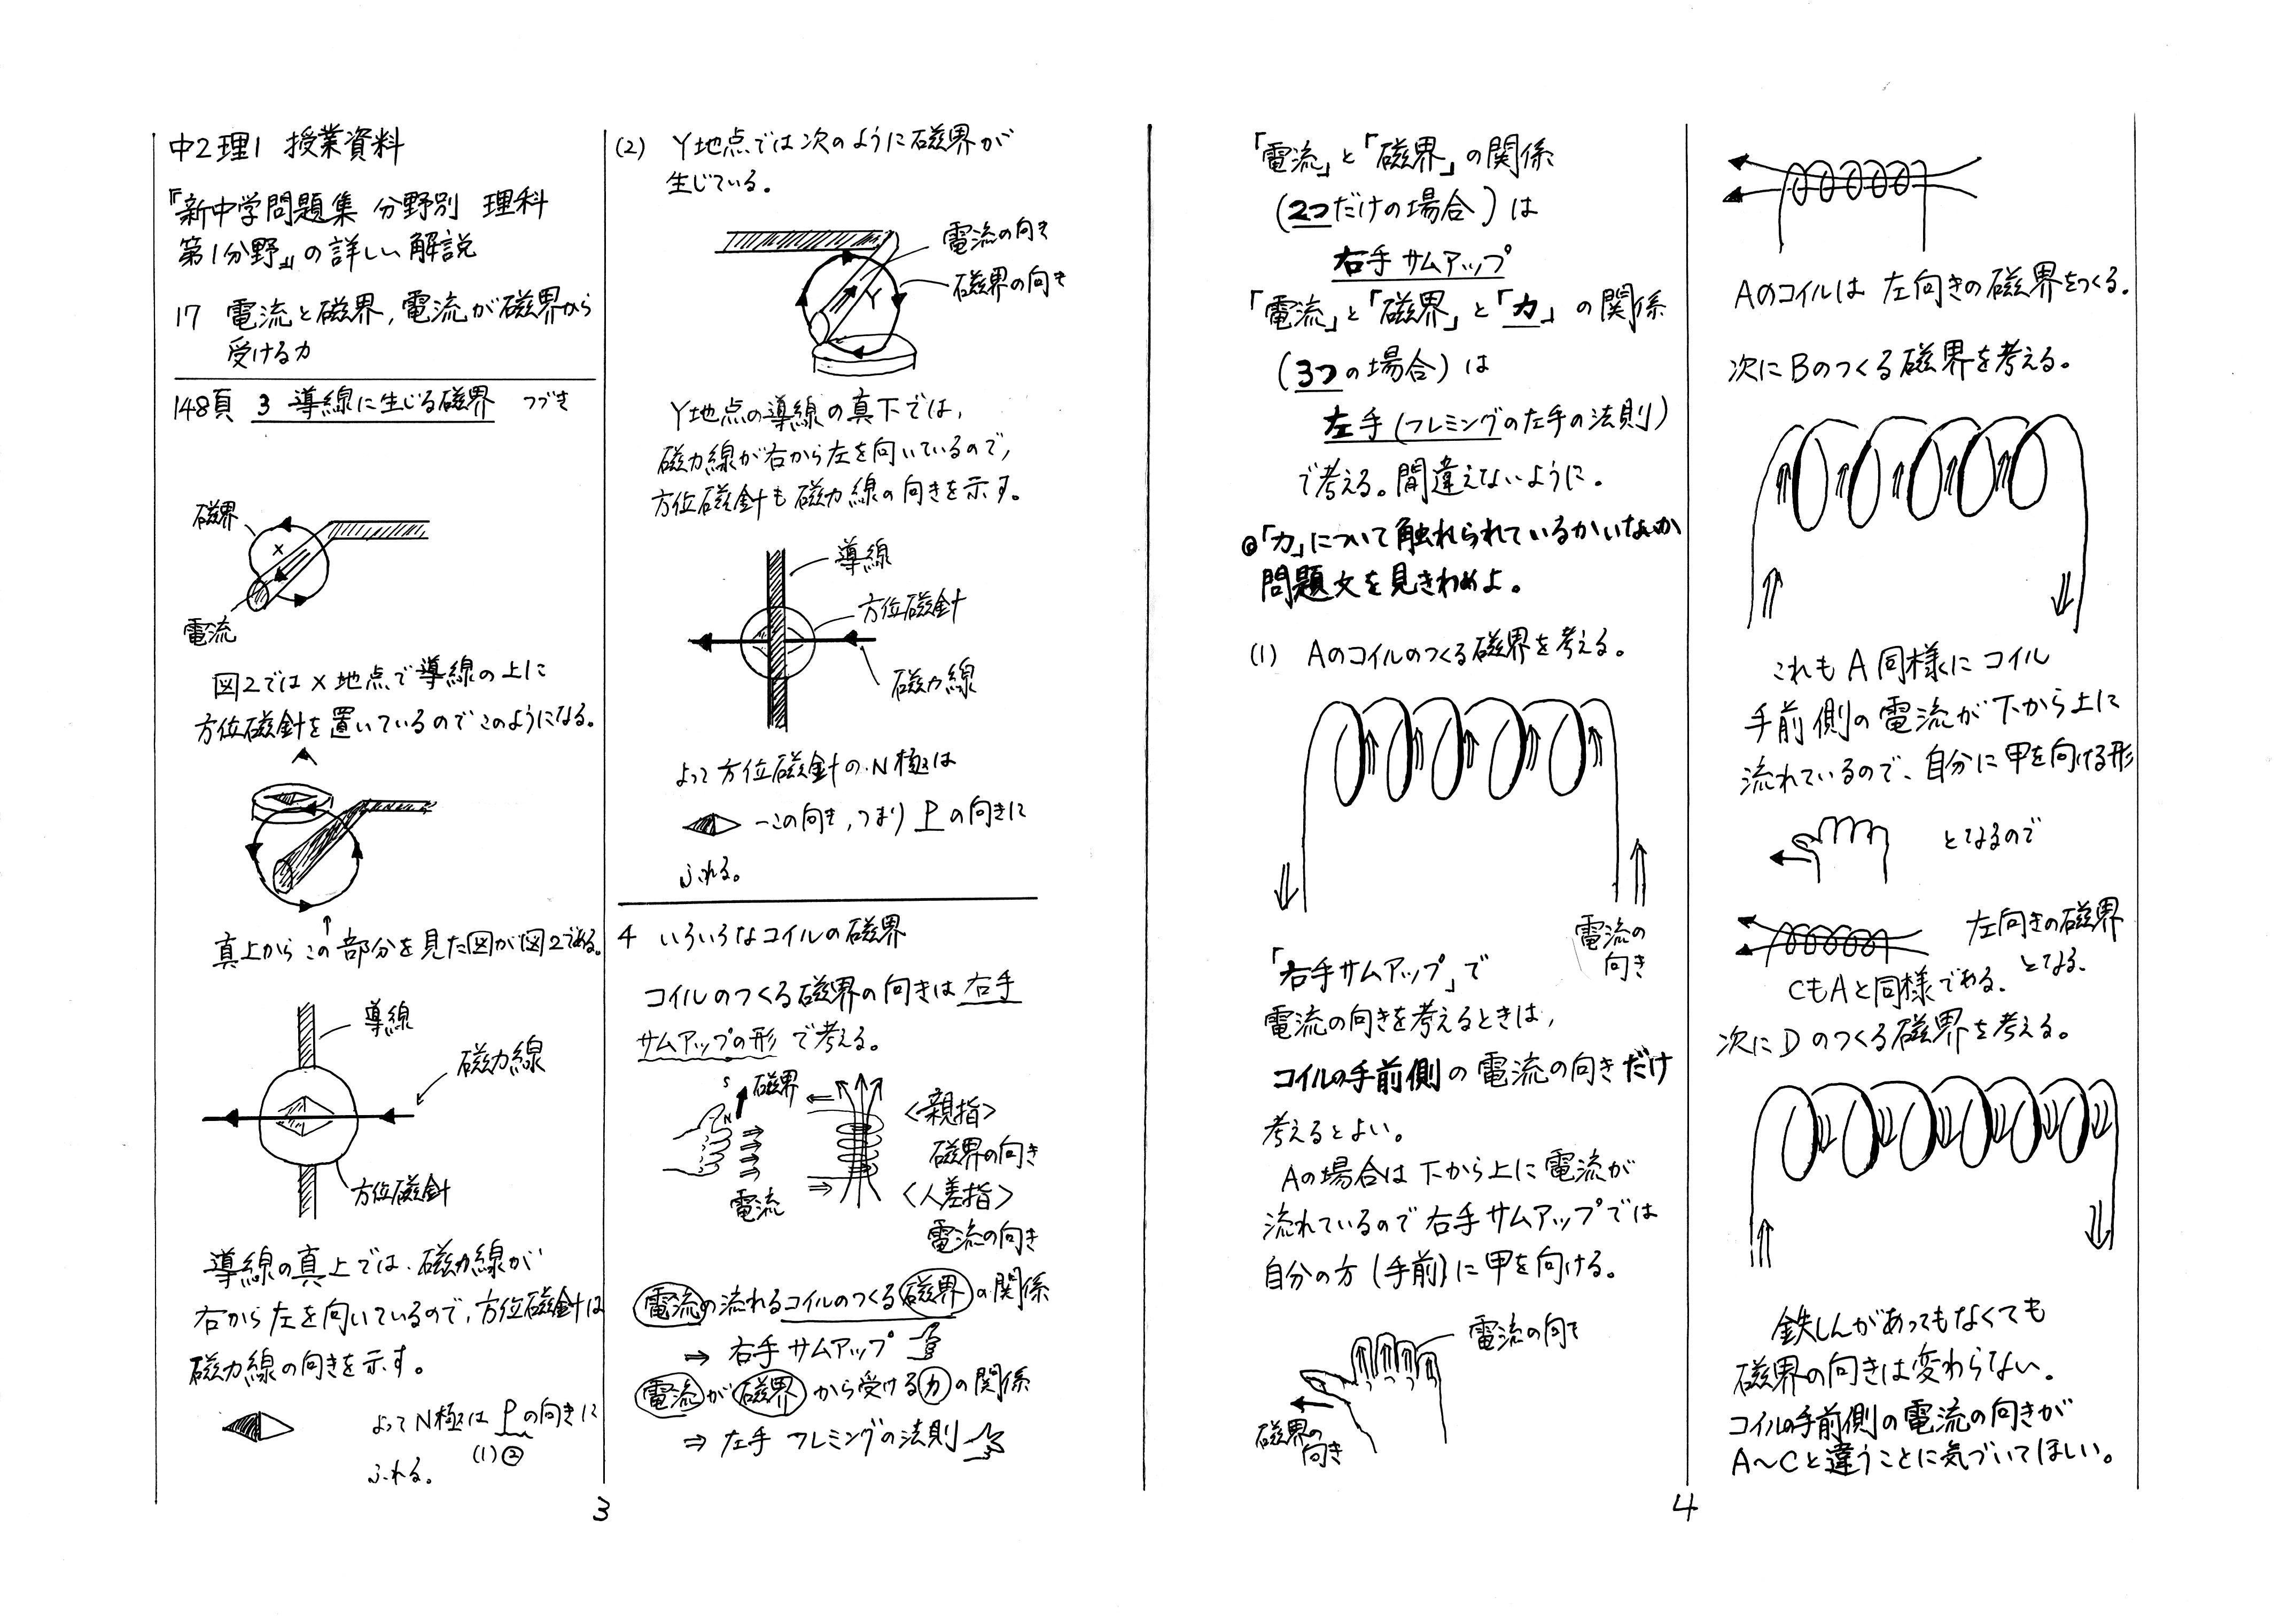 中2理1 授業資料
『新中学問題集 分野別 理科
第1分野』の詳しい解説
17 電流と磁界,電流が磁界から
受ける力
148頁 3 導線に生じる磁界 つづき
磁界
X
電流
図2ではX地点で導線の上に
方位磁針を置いているのでこのようになる。
真上からこの部分を見た図が図2である。
導線
磁力線
方位磁針
導線の真上では、磁力線が
右から左を向いているので,方位磁針は
磁力線の向きを示す。
よってN極はPの向きに
(1)②
ふれる。
3
(2) Y地点では次のように磁界が
生じている。
電流の向き
磁界の向き
Y
Y地点の導線の真下では,
磁力線が右から左を向いているので,
方位磁針も磁力線の向きを示す。
導線
方位磁針
磁力線
よって方位磁針のN極は
この向き,つまりPの向きに
ふれる。
4 いろいろなコイルの磁界
コイルのつくる磁界の向きは右手
サムアップの形で考える。
S
磁界
N
電流
<親指>
磁界の向き
<人差指>
電流の向き
電流の流れるコイルのつくる磁界の関係
⇒ 右手サムアップ
電流が磁界から受ける力の関係
⇒ 左手 フレミングの法則
「電流」と「磁界」の関係
(2つだけの場合)は
右手サムアップ
「電流」と「磁界」と「力」の関係
(3つの場合)は
左手(フレミングの左手の法則)
で考える。間違えないように。
◎「力」について触れられているかいないか
問題文を見きわめよ。
(1) Aのコイルのつくる磁界を考える。
電流の
向き
「右手サムアップ」で
電流の向きを考えるときは,
コイルの手前側の電流の向きだけ
考えるとよい。
Aの場合は下から上に電流が
流れているので右手サムアップでは
自分の方(手前)に甲を向ける。
電流の向き
磁界の
向き
4
Aのコイルは左向きの磁界をつくる。
次にBのつくる磁界を考える。
これもA同様にコイル
手前側の電流が下から上に
流れているので、自分に甲を向ける形
となるので
左向きの磁界
となる。
CもAと同様である。
次にDのつくる磁界を考える。
鉄しんがあってもなくても
磁界の向きは変わらない。
コイルの手前側の電流の向きが
A〜Cと違うことに気づいてほしい。